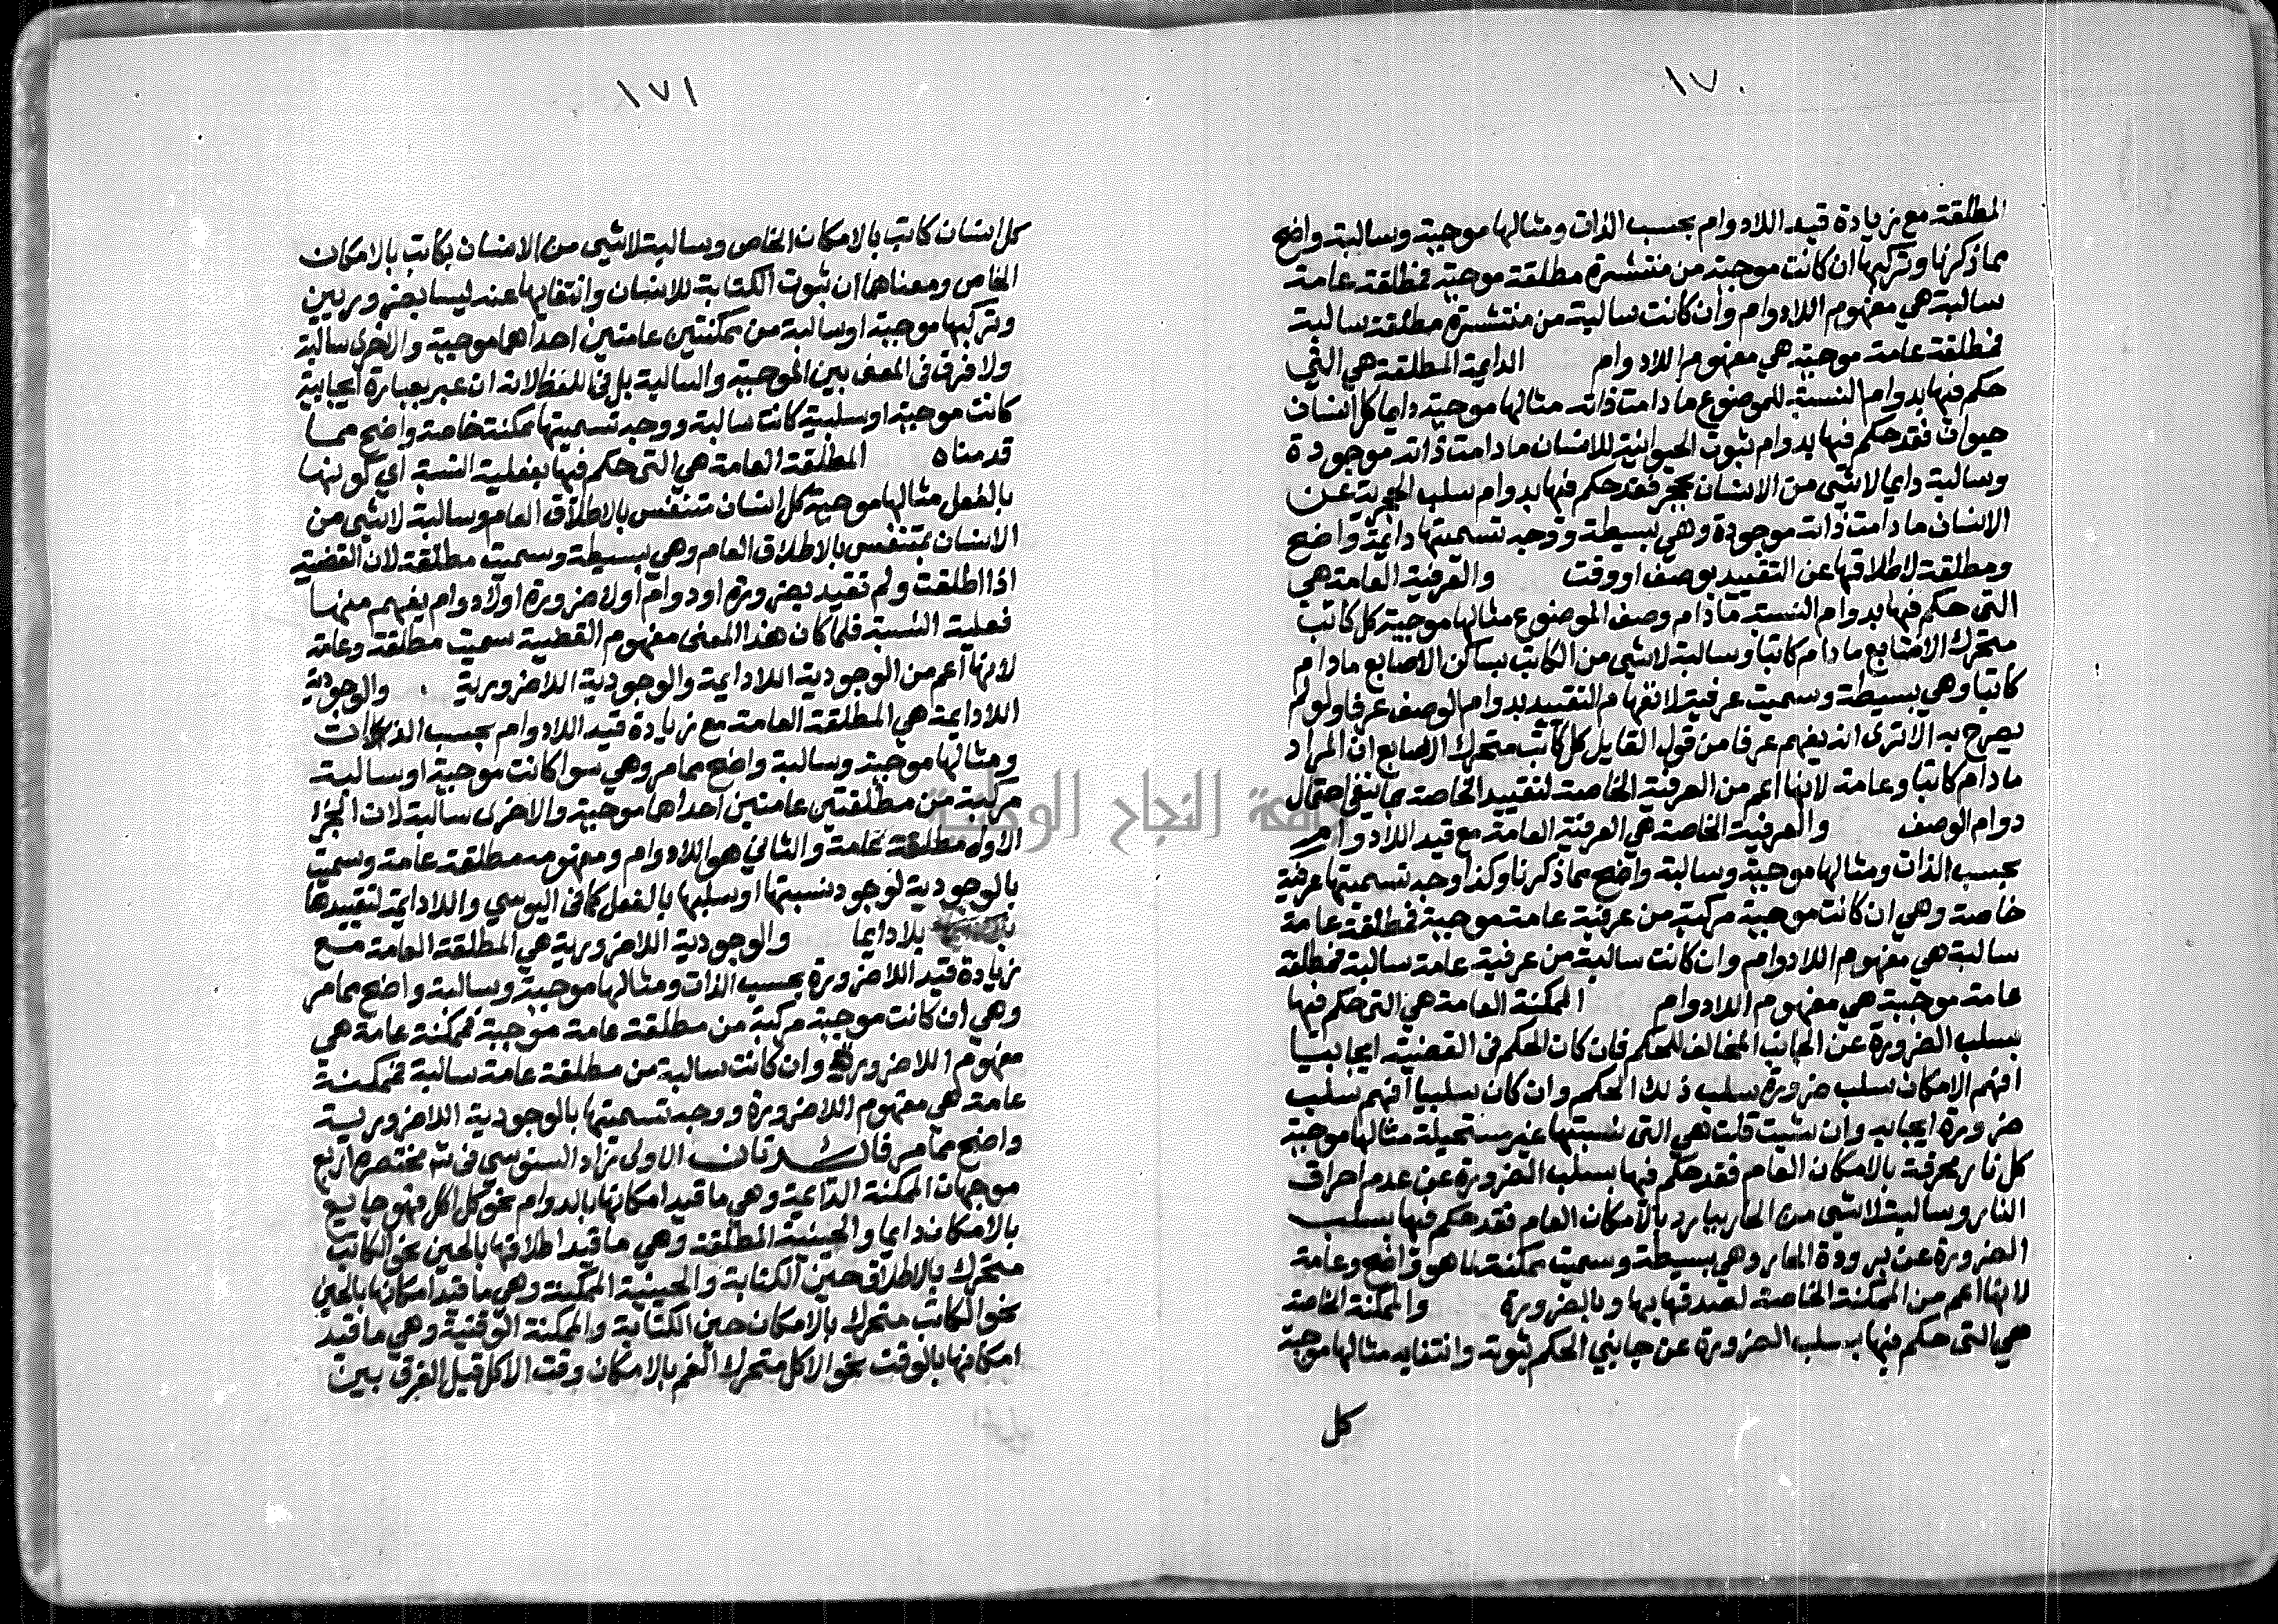 ١٧٠
المطلقة مع زيادة قيد اللادوام بحسب الذات ومثالها موجبة وسالبة واضح
مما ذكرنا وتركيبها ان كانت موجبة من منتشرة مطلقة موجبة فمطلقة عامة
سالبة هي مفهوم اللادوام وان كانت سالبة من منتشرة مطلقة سالبة
فمطلقة عامة موجبة هي مفهوم اللادوام الدايمة المطلقة هي التي
حكم فيها بدوام النسبة للموضوع ما دامت ذاته مثالها موجبة دايما كل انسان
حيوان فقد حكم فيها بدوام ثبوت الحيوانية للانسان ما دامت ذاته موجودة
وسالبة دايما لا شى من الانسان بحجر فقد حكم فيها بدوام سلب الحجرية عن
الانسان ما دامت ذاته موجودة وهي بسيطة ووجه تسميتها دايمة واضح
ومطلقة لاطلاقها عن التقييد بوصف او وقت والعرفية العامة هي
التى حكم فيها بدوام النسبة ما دام وصف الموضوع مثالها موجبة كل كاتب
متحرك الاصابع ما دام كاتبا وسالبة لا شى من الكاتب بساكن الاصابع ما دام
كاتبا وهي بسيطة وسميت عرفية لانفهام التقييد بدوام الوصف عرفا ولو لم
يصرح به الا ترى انه يفهم عرفا من قول القايل كل كاتب متحرك الاصابع ان المراد
ما دام كاتبا وعامة لانها اعم من العرفية الخاصة لتقييد الخاصة بما ينفي احتمال
دوام الوصف والعرفية الخاصة هي العرفية العامة مع قيد اللادوام
بحسب الذات ومثالها موجبة وسالبة واضح مما ذكرنا وكذا وجه تسميتها عرفية
خاصة وهي ان كانت موجبة مركبة من عرفية عامة موجبة فمطلقة عامة
سالبة هي مفهوم اللادوام وان كانت سالبة من عرفية عامة سالبة فمطلقة
عامة موجبة هي مفهوم اللادوام الممكنة العامة هي التى حكم فيها
بسلب الضرورة عن الجانب المخالف للحكم فان كان الحكم فى القضية ايجابيا
افهم الامكان سلب ضرورة سلب ذلك الحكم وان كان سلبيا افهم سلب
ضرورة ايجابه وان شيت قلت هي التى نسبتها غير مستحيلة مثالها موجبة
كل نار محرقة بالامكان العام فقد حكم فيها بسلب الضرورة عن عدم احراق
النار وسالبة لا شى من الحار ببارد بالامكان العام فقد حكم فيها بسلب
الضرورة عن برودة الحار وهي بسيطة وسميت ممكنة لما هو واضح وعامة
لانها اعم من الممكنة الخاصة لصدقها بها وبالضرورة والممكنة الخاصة
هي التى حكم فيها بسلب الضرورة عن جانبي الحكم ثبوته وانتفايه مثالها موجبة
كل
١٧١
كل انسان كاتب بالامكان الخاص وسالبة لا شى من الانسان بكاتب بالامكان
الخاص ومعناهما ان ثبوت الكتابة للانسان وانتفايها عنه ليسا بضروريين
وتركيبها موجبة او سالبة من ممكنتين عامتين احداهما موجبة والاخرى سالبة
ولا فرق فى المعنى بين الموجبة والسالبة بل فى اللفظ لانه ان عبر بعبارة ايجابية
كانت موجبة او سلبية كانت سالبة ووجه تسميتها ممكنة خاصة واضح مما
قدمناه المطلقة العامة هي التى حكم فيها بفعلية النسبة اي كونها
بالفعل مثالها موجبة كل انسان متنفس بالاطلاق العام وسالبة لا شى من
الانسان بمتنفس بالاطلاق العام وهي بسيطة وسميت مطلقة لان القضية
اذا اطلقت ولم تقيد بضرورة او دوام او لا ضرورة او لا دوام يفهم منها
فعلية النسبة فلما كان هذا المعنى مفهوم القضية سميت مطلقة وعامة
لانها اعم من الوجودية اللادايمة والوجودية اللاضرورية والوجودية
اللادايمة هي المطلقة العامة مع زيادة قيد اللادوام بحسب الذات
ومثالها موجبة وسالبة واضح مما مر وهي سوا كانت موجبة او سالبة
مركبة من مطلقتين عامتين احداهما موجبة والاخرى سالبة لان الجزا
الاول مطلقة عامة والثاني هو اللادوام ومفهومه مطلقة عامة وسميت
بالوجودية لوجود نسبتها او سلبها بالفعل كما فى اليوسي واللادايمة لتقييدها
بلا دايما والوجودية اللاضرورية هي المطلقة العامة مع
زيادة قيد اللاضرورة بحسب الذات ومثالها موجبة وسالبة واضح مما مر
وهي ان كانت موجبة مركبة من مطلقة عامة موجبة فممكنة عامة هي
مفهوم اللاضرورة وان كانت سالبة من مطلقة عامة سالبة فممكنة
عامة هي مفهوم اللاضرورة ووجه تسميتها بالوجودية اللاضرورية
واضح مما مر فائدتان الاولى زاد السنوسي فى شه مختصره اربع
موجهات الممكنة الدايمة وهي ما قيد امكانها بالدوام نحو كل اكل فهو جايع
بالامكان دايما والحينية المطلقة وهي ما قيد اطلاقها بالحين نحو الكاتب
متحرك بالاطلاق حين الكتابة والحينية الممكنة وهي ما قيد امكانها بالحين
نحو الكاتب متحرك بالامكان حين الكتابة والممكنة الوقتية وهي ما قيد
امكانها بالوقت نحو الاكل متحرك الفم بالامكان وقت الاكل قيل الفرق بين
جامعة النجاح الوطنية